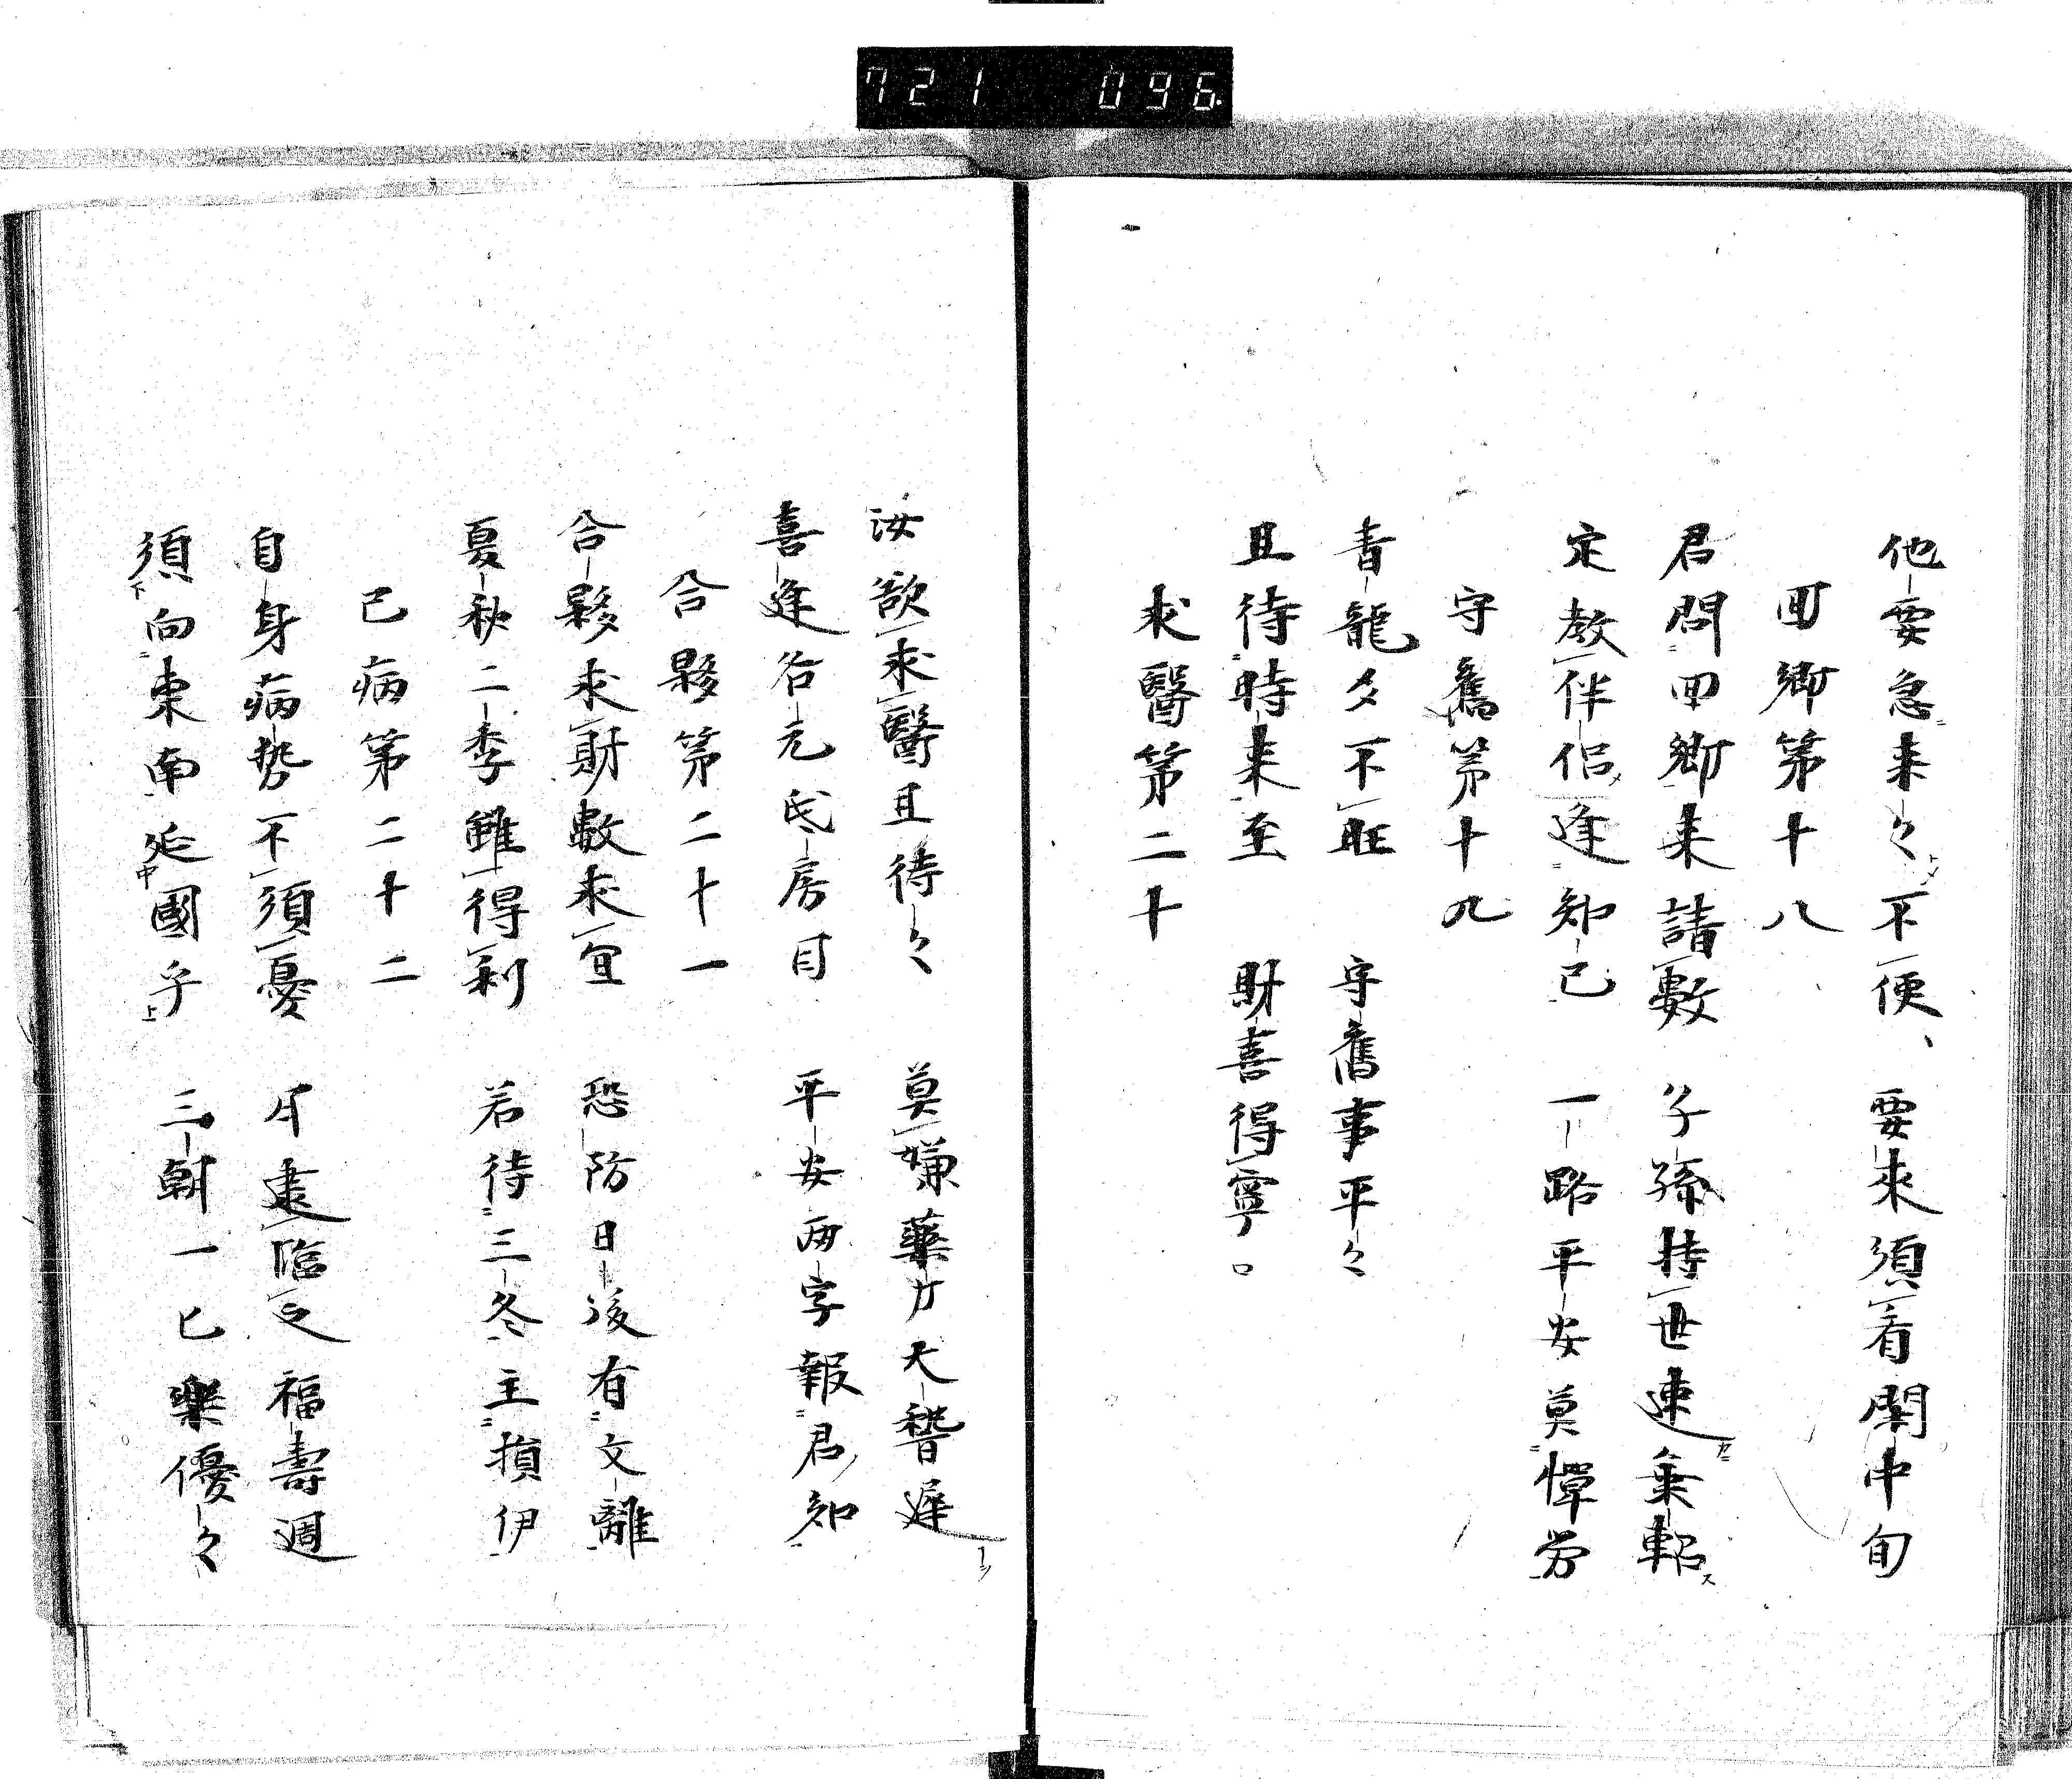 721 096
他要急来々不便、 要来須看閏中旬
回郷第十八
君問回郷来請數 子孫持世速乗軺
定教伴侶逢知己 一路平安莫憚労
守舊第十九
青龍夕不旺 守舊事平々
且待時来至 財喜得寧。
求醫第二十
汝欲求醫且待々 莫嫌藥力大暫遅
喜逢谷元氐房日 平安两字報君知
合夥第二十一
合夥求財數未宜 恐防日後有文離
夏秋二季雖得利 若待三冬主損伊
己病第二十二
自身病勢不須憂 逮臨之福壽週
須向東南延國手 三朝一匕樂優々